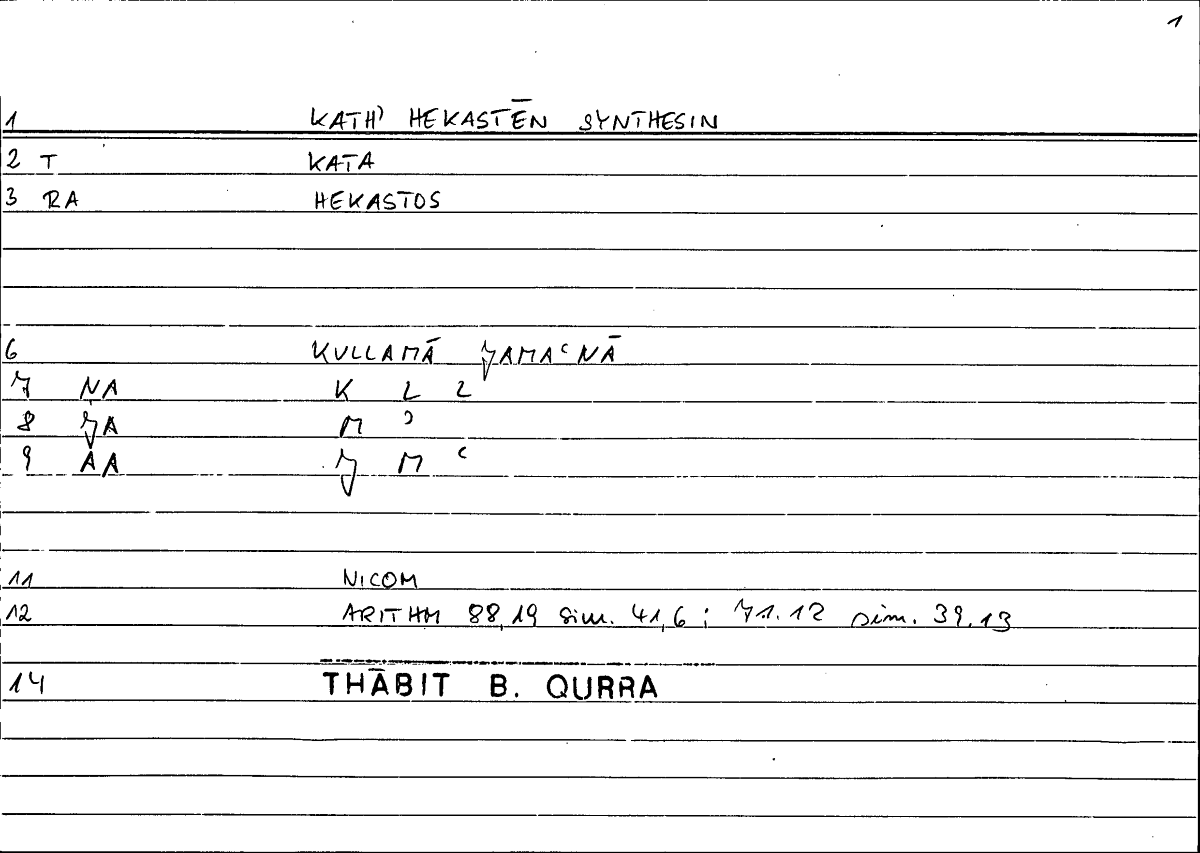 1
1 KATH' HEKASTĒN SYNTHESIN
2 T KATA
3 RA HEKASTOS
6 KULLAMĀ ǦAMAʿNĀ
7 NA K L L
8 ǦA M ʾ
9 AA Ǧ M ʿ
11 NICOM
12 ARITHM 88,19 sim. 41,6 ; 71.12 sim. 39.13
14 THĀBIT B. QURRA